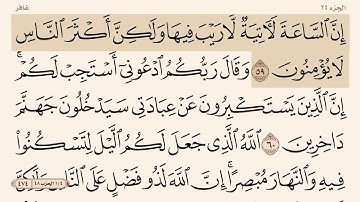 الجزء ٢٤
غافر
إِنَّ ٱلسَّاعَةَ لَأٓتِيَةٌ لَّا رَيْبَ فِيهَا وَلَٰكِنَّ أَكْثَرَ ٱلنَّاسِ
لَا يُؤْمِنُونَ ٥٩ وَقَالَ رَبُّكُمُ ٱدْعُونِيٓ أَسْتَجِبْ لَكُمْ ۚ
إِنَّ ٱلَّذِينَ يَسْتَكْبِرُونَ عَنْ عِبَادَتِي سَيَدْخُلُونَ جَهَنَّمَ
دَاخِرِينَ ٦٠ ٱللَّهُ ٱلَّذِي جَعَلَ لَكُمُ ٱلَّيْلَ لِتَسْكُنُوا۟
فِيهِ وَٱلنَّهَارَ مُبْصِرًا ۚ إِنَّ ٱللَّهَ لَذُو فَضْلٍ عَلَى ٱلنَّاسِ وَلَٰكِنَّ
١/٤ الحزب ٤٨
٤٧٤